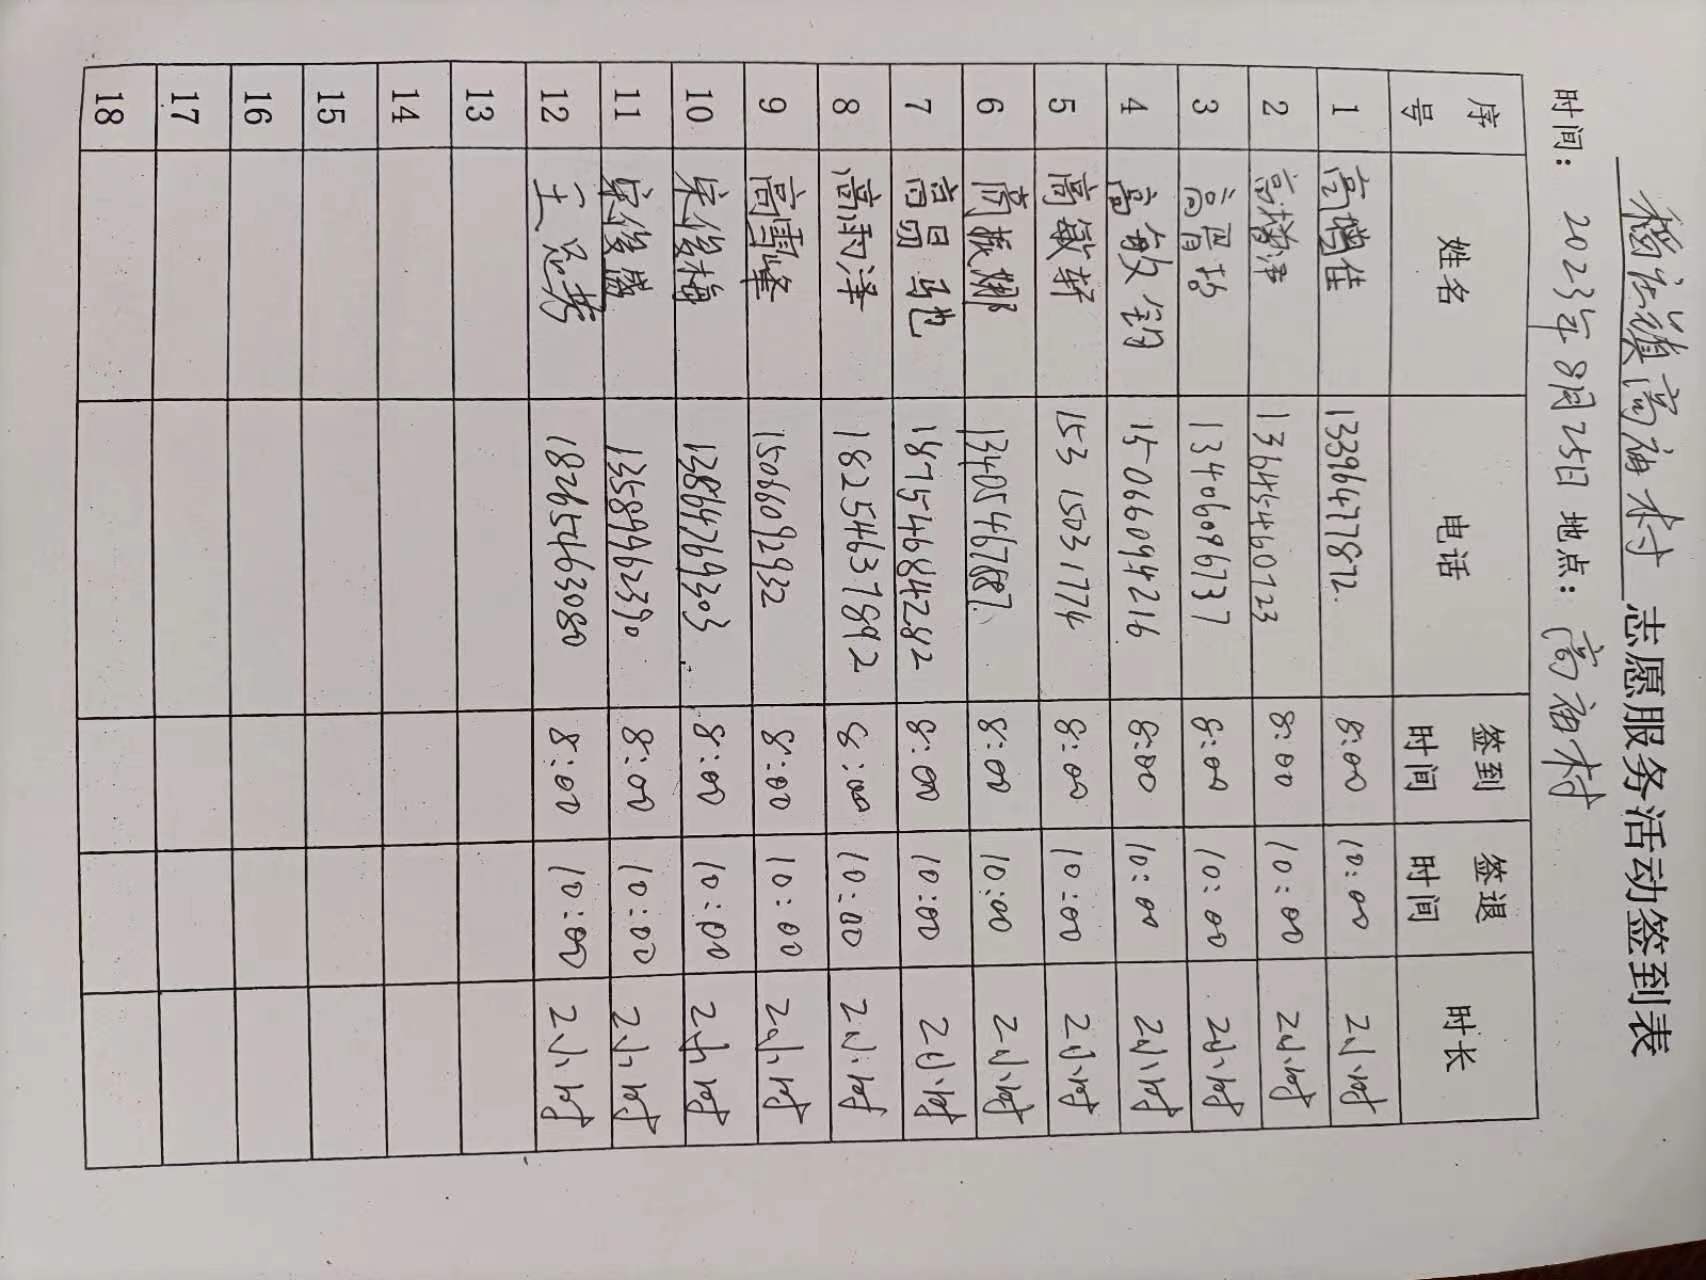 稻庄镇高庙村 志愿服务活动签到表
时间： 2023年8月25日 地点： 高庙村
序号 姓名 电话 签到时间 签退时间 时长
1 高增佳 13396477872 8:00 10:00 2小时
2 高梅洋 13645460723 8:00 10:00 2小时
3 高 13406096737 8:00 10:00 2小时
4 高敏钢 15066094216 8:00 10:00 2小时
5 高敏轩 153 1503 1774 8:00 10:00 2小时
6 高振娜 13405467887 8:00 10:00 2小时
7 高昂驰 18754684282 8:00 10:00 2小时
8 高雨泽 18254637892 8:00 10:00 2小时
9 高雪峰 15066092932 8:00 10:00 2小时
10 宋俊梅 13864769303 8:00 10:00 2小时
11 宋俊盛 135899962390 8:00 10:00 2小时
12 王 18265463080 8:00 10:00 2小时
13
14
15
16
17
18